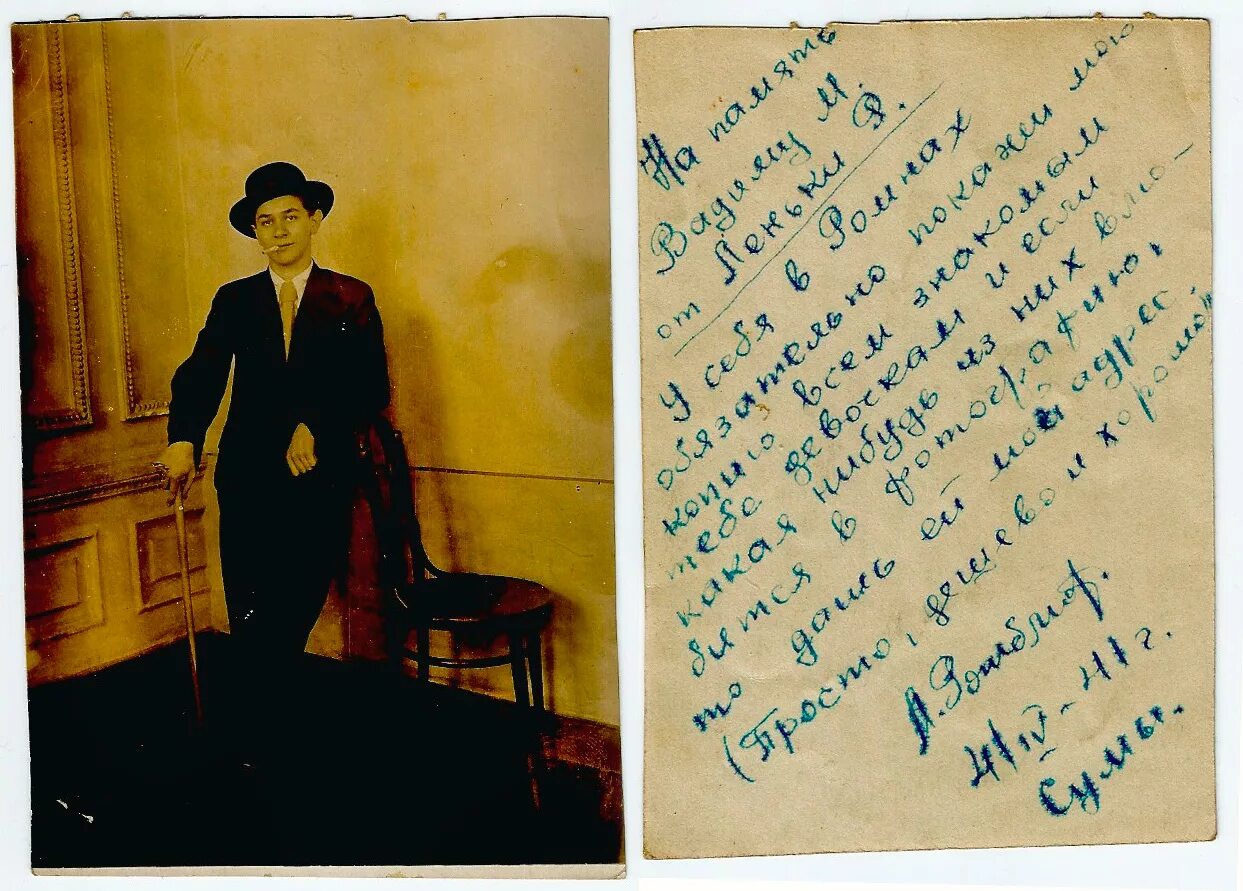 На память
Вадиму М.
от Леньки Р.
У себя в Ромнах
обязательно покажи мою
копию всем знакомым
тебе девочкам и если
какая нибудь из них влю-
бится в фотографию,
то дашь ей мой адрес
(Просто, дешево и хорошо).
Л.
4/IV-41 г.
Сумы.